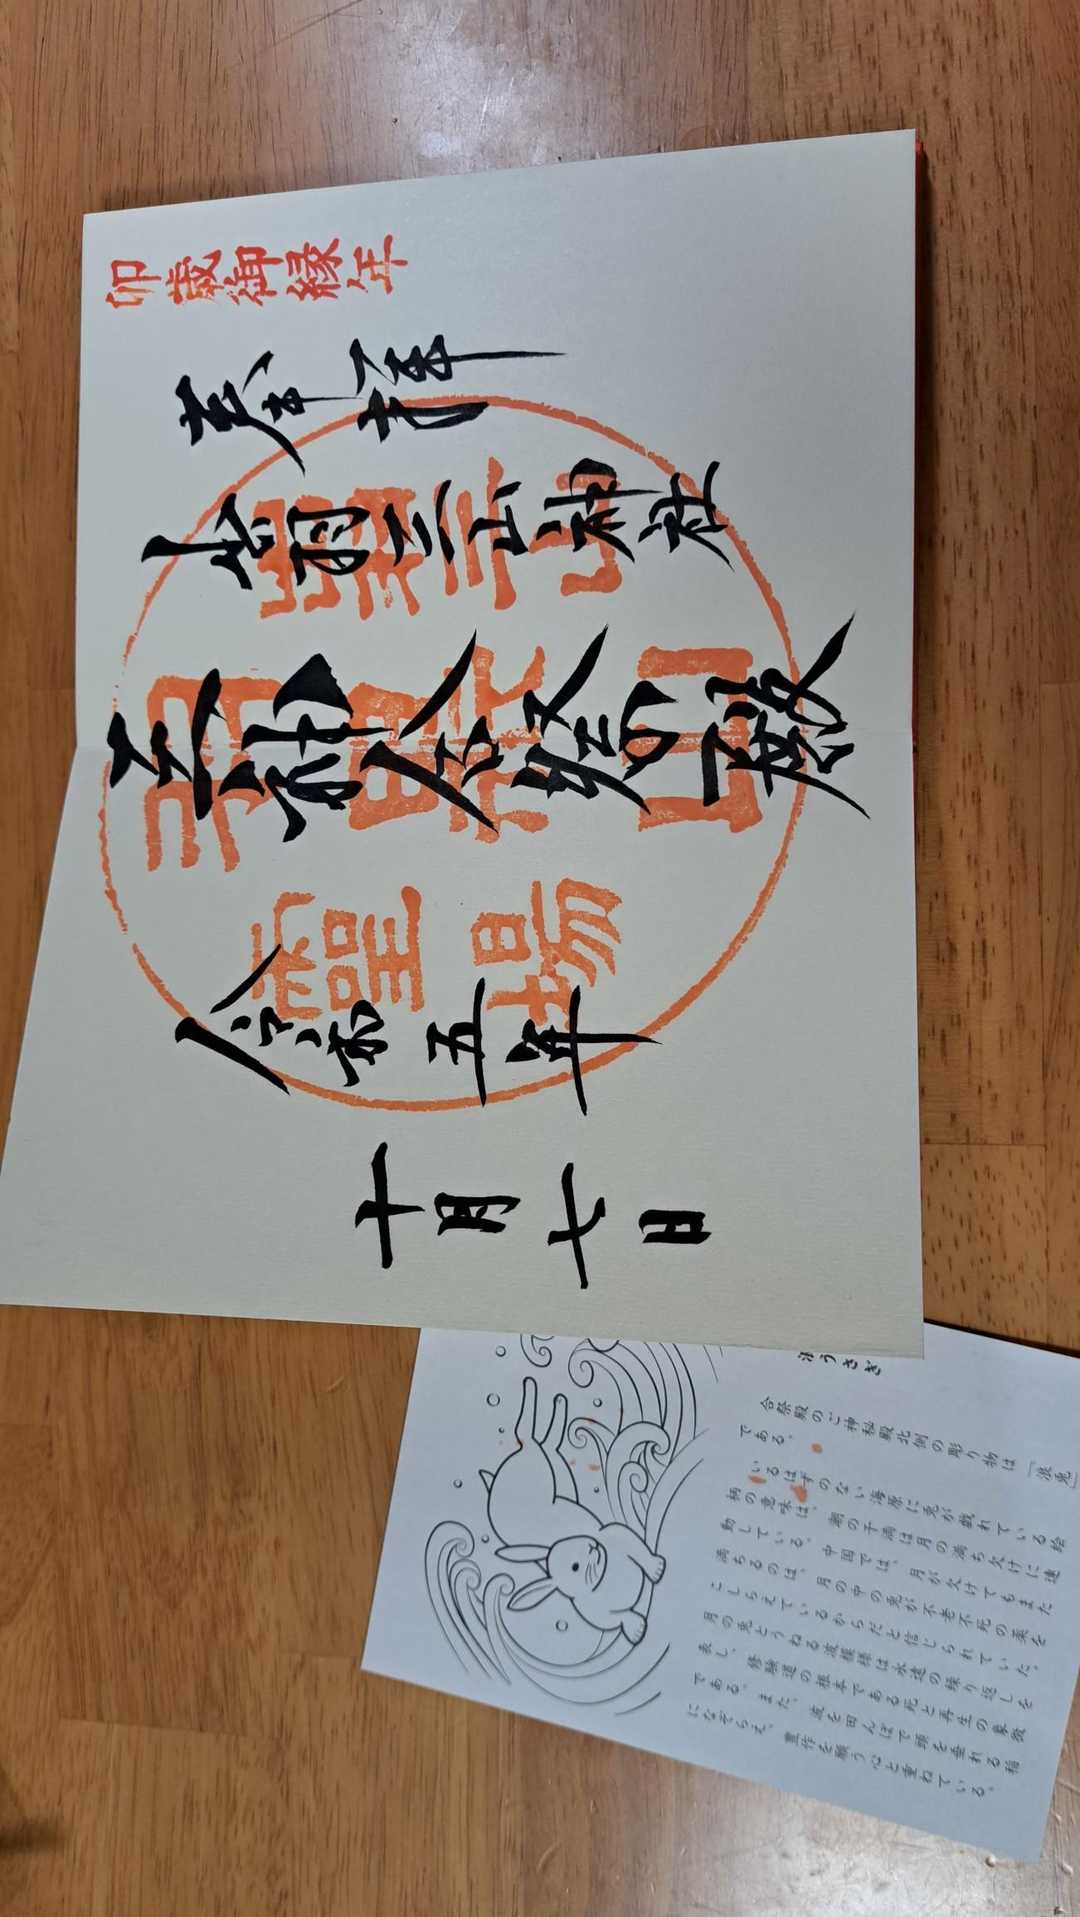 卯歳御縁年
奉拝
出羽三山神社
三神合祭殿
霊場
令和五年
十月七日
浪うさぎ
合祭殿のご神秘殿北側の彫り物は「浪兎」
である。
いるはずのない海原に兎が戯れている絵
柄の意味は、潮の干満は月の満ち欠けに連
動している。中国では、月が欠けてもまた
満ちるのは、月の中の兎が不老不死の薬を
こしらえているからだと信じられていた。
月の兎とうねる波模様は永遠の繰り返しを
表し、修験道の根本である死と再生の象徴
である。また、波を田んぼで頭を垂れる稲
になぞらえ、豊作を願う心と重ねている。